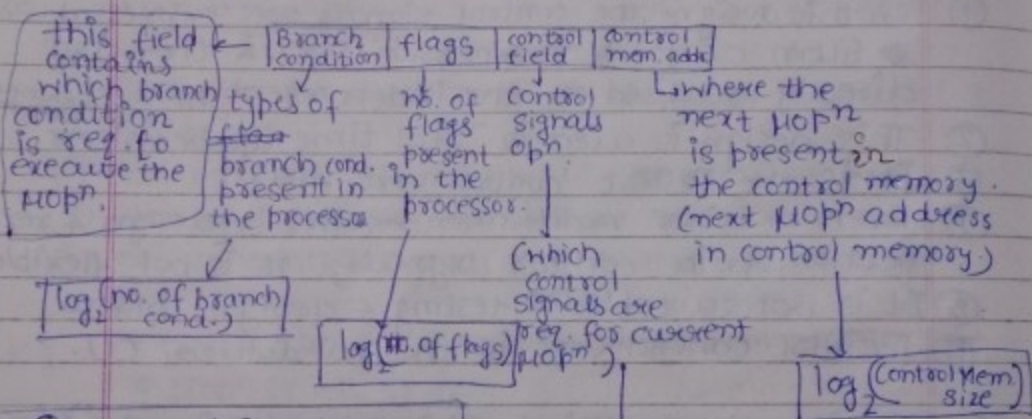 this field
contains
which branch
condition
is req. to
execute the
μopⁿ.
Branch condition | flags | control field | control mem. addr
types of
branch cond.
present in
the processor
log₂(no. of branch
cond.)
no. of
flags
present
in the
processor.
log₂(no. of flags)
control
signals
opⁿ
(which
control
signals are
req. for current
μopⁿ.)
where the
next μopⁿ
is present in
the control memory.
(next μopⁿ address
in control memory.)
log₂(Control Mem
size)